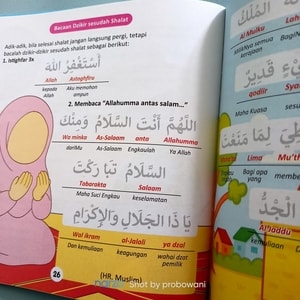 Bacaan Dzikir sesudah Shalat
Adik-adik, bila selesai shalat jangan langsung pergi, tetapi
bacalah dzikir-dzikir sesudah shalat sebagai berikut:
1. Istighfar 3x
أَسْتَغْفِرُ اللهَ
Allah Astaghfiru
kepada Allah Aku memohon ampun
2. Membaca "Allahumma antas salam..."
اللَّهُمَّ أَنْتَ السَّلَامُ وَمِنْكَ
Wa minka As-Salaam anta Allahumma
dariMu As-Salaam engkaulah Ya Allah
السَّلَامُ تَبَارَكْتَ
Tabarakta Salaam
Maha Suci Engkau keselamatan
يَا ذَا الْجَلَالِ وَالْإِكْرَامِ
Wal ikram al-jalali ya dzal
Dan kemuliaan keagungan wahai dzat pemilik
(HR. Muslim)
26
Shot by probowani
الْمُلْكُ
Al Mulku
قَدِيرٌ
qodiir
Maha Kuasa
لِمَا مَنَعْتَ
Lima
Bagi apa yang
الْجَدُّ
Al Jaddu
kemuliaan